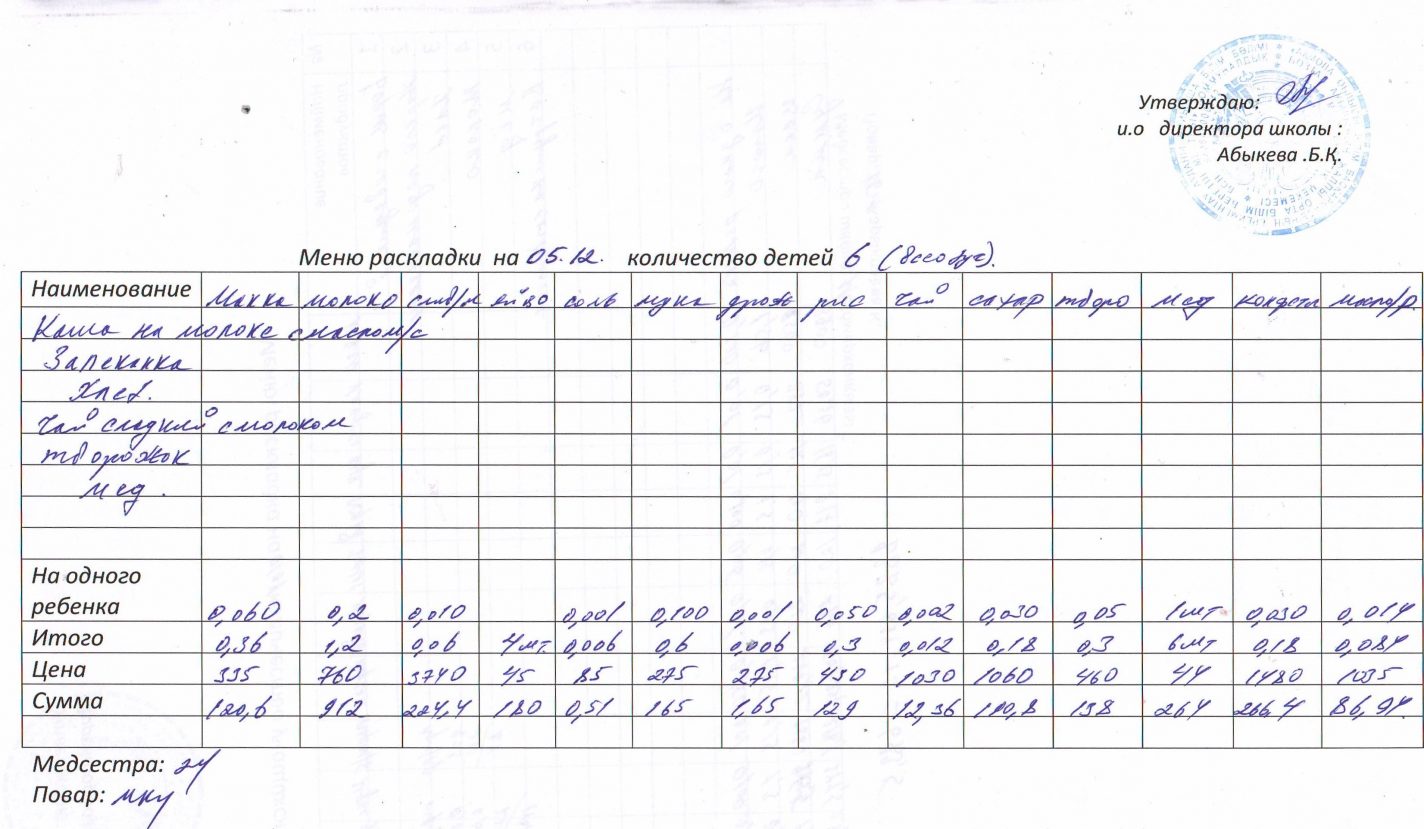 Утверждаю:
и.о директора школы :
Абыкева .Б.Қ.
Меню раскладки на 05.12. количество детей 6
Наименование Манка молоко слив/м яйцо соль мука дрож рис чай сахар творо мед конфеты масло/р.
Каша на молоке с маслом/с
Запеканка
Хлеб.
Чай сладкий с молоком
творожок
мед.
На одного
ребенка 0,060 0,2 0,010 0,001 0,100 0,001 0,050 0,002 0,030 0,05 1шт 0,030 0,014
Итого 0,36 1,2 0,06 4шт 0,006 0,6 0,006 0,3 0,012 0,18 0,3 6шт 0,18 0,084
Цена 335 760 3740 45 85 275 275 430 1030 1060 460 44 1480 1035
Сумма 120,6 912 224,4 180 0,51 165 1,65 129 12,36 190,8 138 264 266,4 86,94
Медсестра:
Повар: